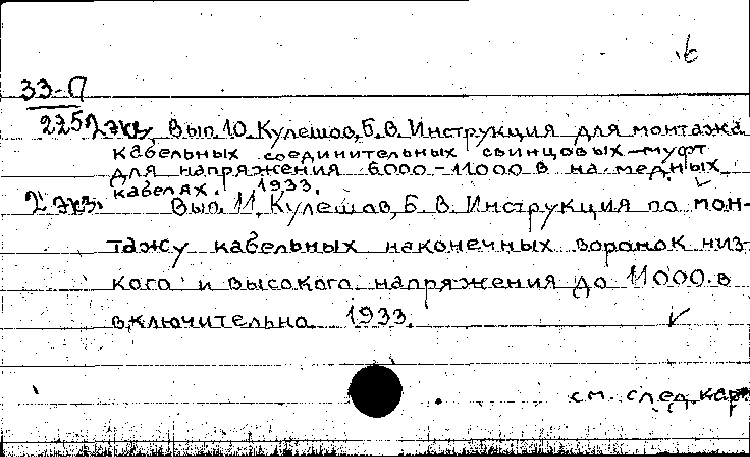 6
33-П
225
2 экз. Вып. 10. Кулешов, Б. В. Инструкция для монтажа
кабельных соединительных свинцовых муфт
для напряжения 6000-11000 в на медных
кабелях. 1933.
2 экз. Вып. 11. Кулешов, Б. В. Инструкция по мон-
тажу кабельных наконечных воронок низ-
кого и высокого напряжения до 11000 в
включительно 1933.
см. след. кар.